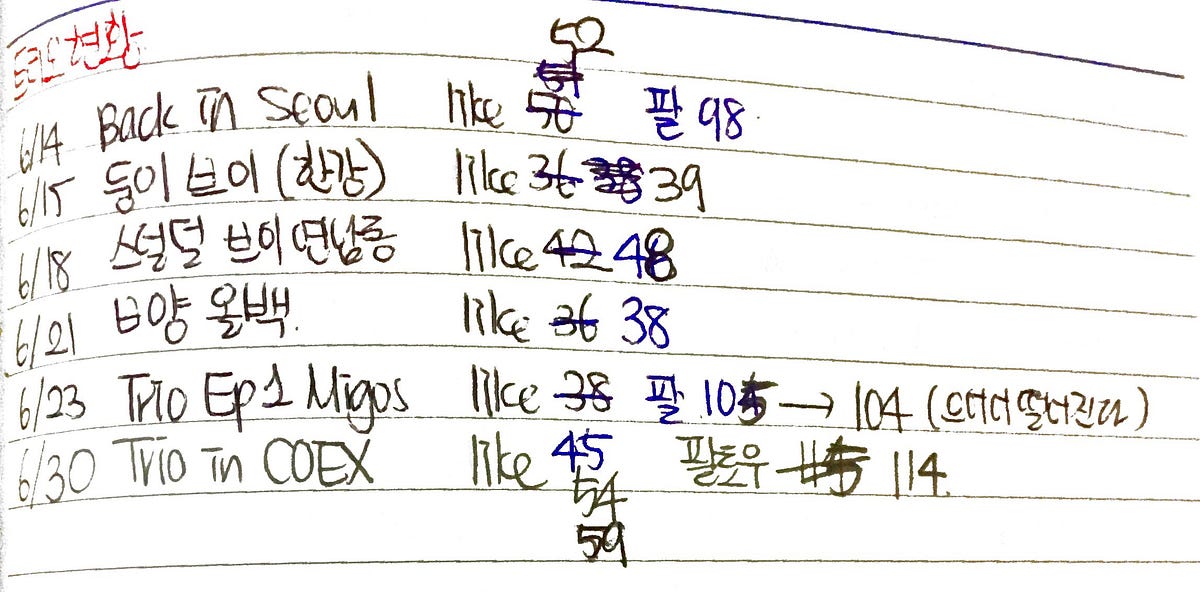 트리오 현황
52
51
6/14 Back in Seoul like 50 팔 98
6/15 둥이 브이 (한강) like 36 38 39
6/18 스덜덜 브이 연남동 like 42 48
6/21 브양 올백. like 36 38
6/23 Trio Ep1 Migos like 38 팔 105 → 104 (으더더 떨어진다)
6/30 Trio in COEX like 45 팔로우 115 114
54
59